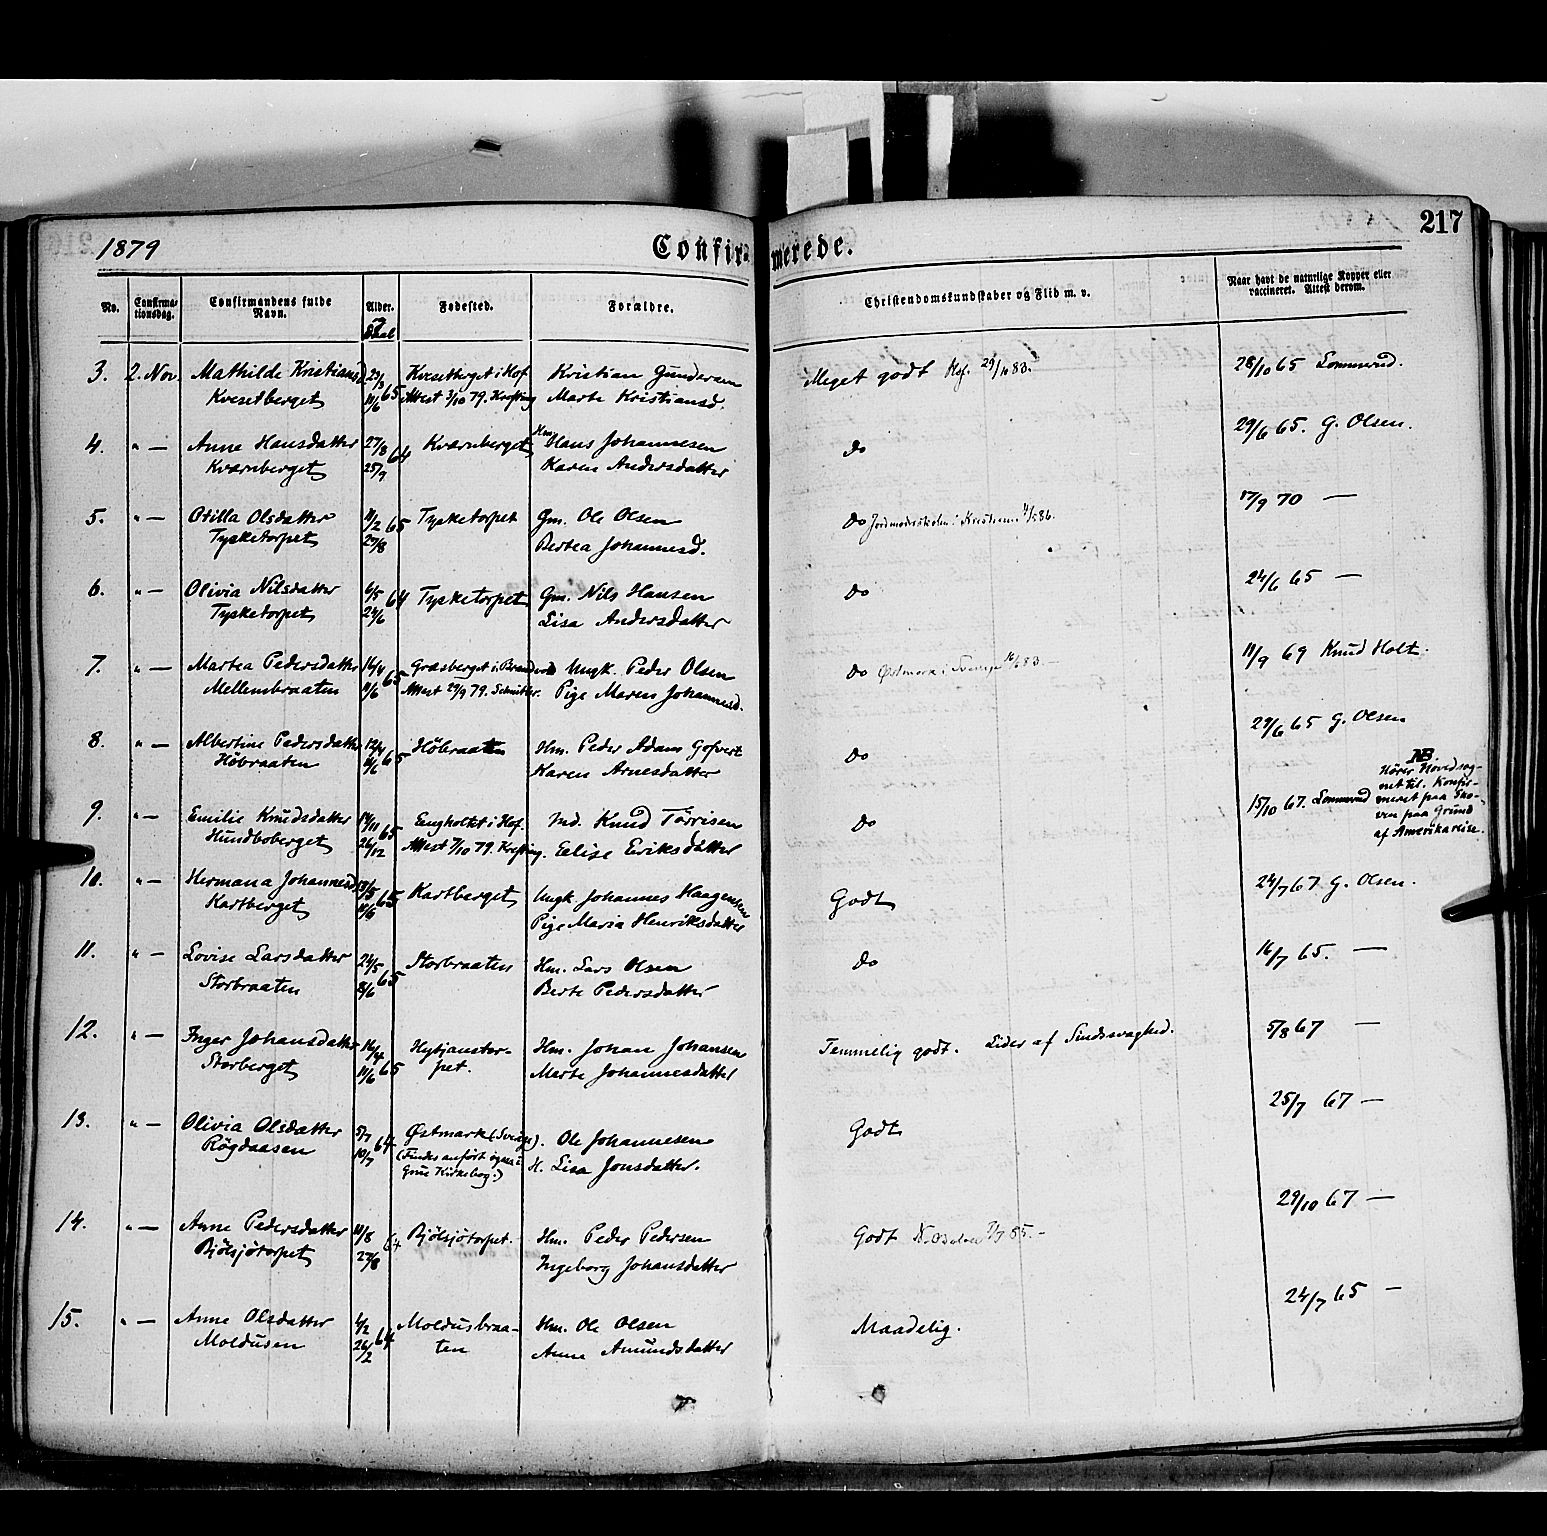 217
1879 Confirmerede.
No. Confirmationsdag. Confirmandens fulde Navn. Alder. Daab Fødested. Forældre. Christendomskundskaber og Flid m. v. Naar havt de naturlige Kopper eller vaccineret. Attest derom.
3. 2. Nov. Mathilde Kristiansd. 65 Kvesetberget i Hof Kristian Gundersen Meget godt Hof. 28/10 65 Lommerud.
Kvesetberget 11/6 Attest 3/10 79. Krefting Marte Kristiansd.
4. " — Anne Hansdatter 27/8 64 Kværnberget Hm. Hans Johannesen do 29/6 65. G. Olsen.
Kværnberget 25/9 Karen Andersdatter
5. " — Otilla Olsdatter 11/2 65 Tysketorpet Gm. Ole Olsen do Jordmoderskolen i Kristiania 86. 17/9 70 —
Tysketorpet 27/8 Bertea Johannesd.
6. " — Olivia Nilsdatter 6/5 64 Tysketorpet Gm. Nils Hansen do 24/6 65 —
Tysketorpet 24/6 Lisa Andersdatter
7. " — Martea Pedersdatter 16/4 65 Græsberget i Brandval Ungk. Peder Olsen do Østmark i Sverige 83. — 11/9 69 Knud Holt.
Mellembraaten 11/6 Attest 29/9 79. Pige Maren Johannesd.
8. " — Albertine Pedersdatter 12/4 65 Høbraaten Hm. Peder Adam Gofvert do 29/6 65 G. Olsen
Høbraaten 11/6 Karen Arnesdatter
9. " — Emilie Knudsdatter 14/11 65 Engholtet i Hof. Ind. Knud Tørrisen do 15/10 67. Lommerud
Hundboberget 26/12 Attest 7/10 79. Krefting. Eelise Eeriksdatter
NB
Hører Hovedsog-
net til. Konfir-
meret paa Sko-
ven paa Grund
af Amerikareise.
10. " — Hermana Johannesd. 13/5 65 Kartberget Ungk Johannes Haagensen Godt 24/7 67 G. Olsen.
Kartberget 11/6 Pige Maria Henriksdatter
11. " — Lovise Larsdatter 24/5 65 Storbraaten Hm. Lars Olsen do 16/7 65. —
Storbraaten 8/6 Berte Pedersdatter
12. " — Inger Johansdatter 16/4 65 Hytjanstor- Hm. Johan Johansen Temmelig godt. Lider af Sindssvaghed. 5/8 67 —
Storberget 11/6 pet. Marte Johannesdatter
13. " — Olivia Olsdatter 5/7 64 Østmark (Sverige). Ole Johannesen Godt 25/7 67 —
Rögdaasen 10/7 (Findes anført ogsaa i H. Lisa Jonsdatter.
Grue Kirkebog.)
14. " — Anne Pedersdatter 11/8 64 Bjölsjötorpet. Hm. Peder Pedersen Godt 85. — 29/10 67 —
Bjölsjötorpet 27/8 Ingeborg Johansdatter
15. " — Anne Olsdatter 4/2 64 Moldusbraa- Hm. Ole Olsen Maadelig. 24/7 65 —
Moldusen 26/2 ten Anne Amundsdatter